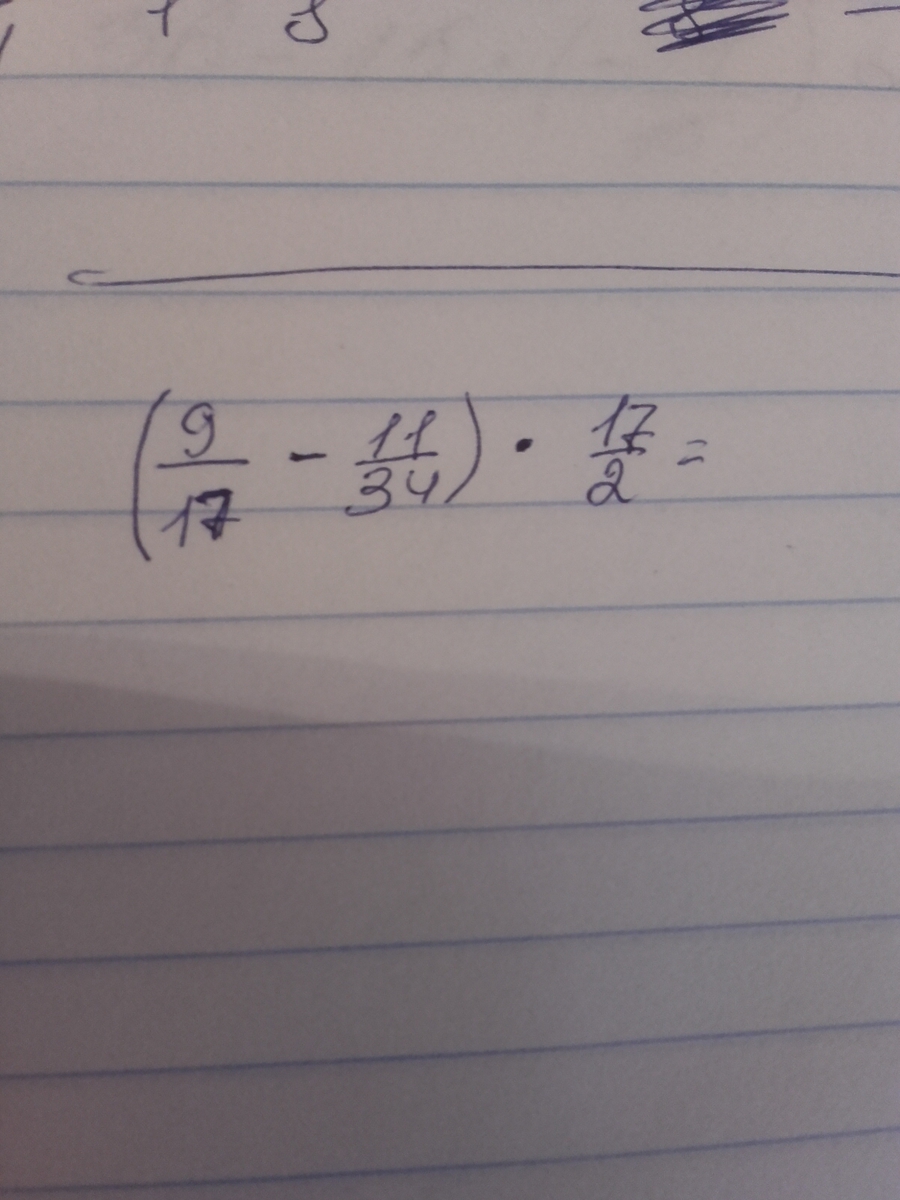 (9/17 - 11/34) · 17/2 =